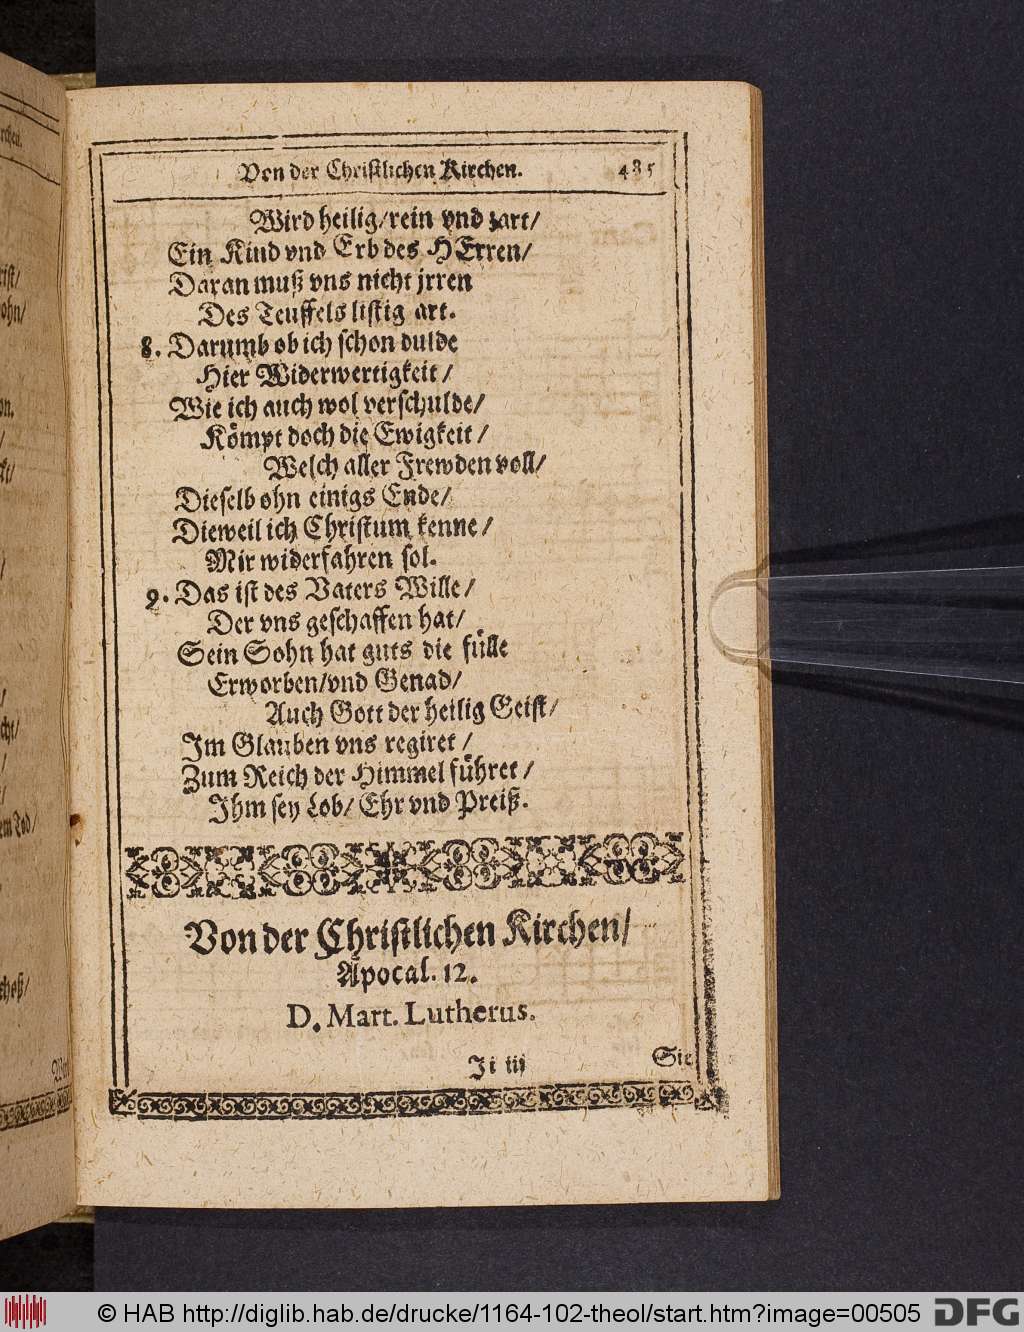 Von der Christlichen Kirchen. 485
Wird heilig/rein vnd zart/
Ein Kind vnd Erb des HErren/
Daran muß vns nicht jrren
Des Teuffels listig art.
8. Darumb ob ich schon dulde
Hier Widerwertigkeit/
Wie ich auch wol verschulde/
Kömpt doch die Ewigkeit/
Welch aller Frewden voll/
Dieselb ohn einigs Ende/
Dieweil ich Christum kenne/
Mir widerfahren sol.
9. Das ist des Vaters Wille/
Der vns geschaffen hat/
Sein Sohn hat guts die fülle
Erworben/vnd Genad/
Auch Gott der heilig Geist/
Im Glauben vns regiret/
Zum Reich der Himmel führet/
Ihm sey Lob/ Ehr vnd Preiß.
Von der Christlichen Kirchen/
Apocal. 12.
D. Mart. Lutherus.
Ji iij Sie
© HAB http://diglib.hab.de/drucke/1164-102-theol/start.htm?image=00505 DFG